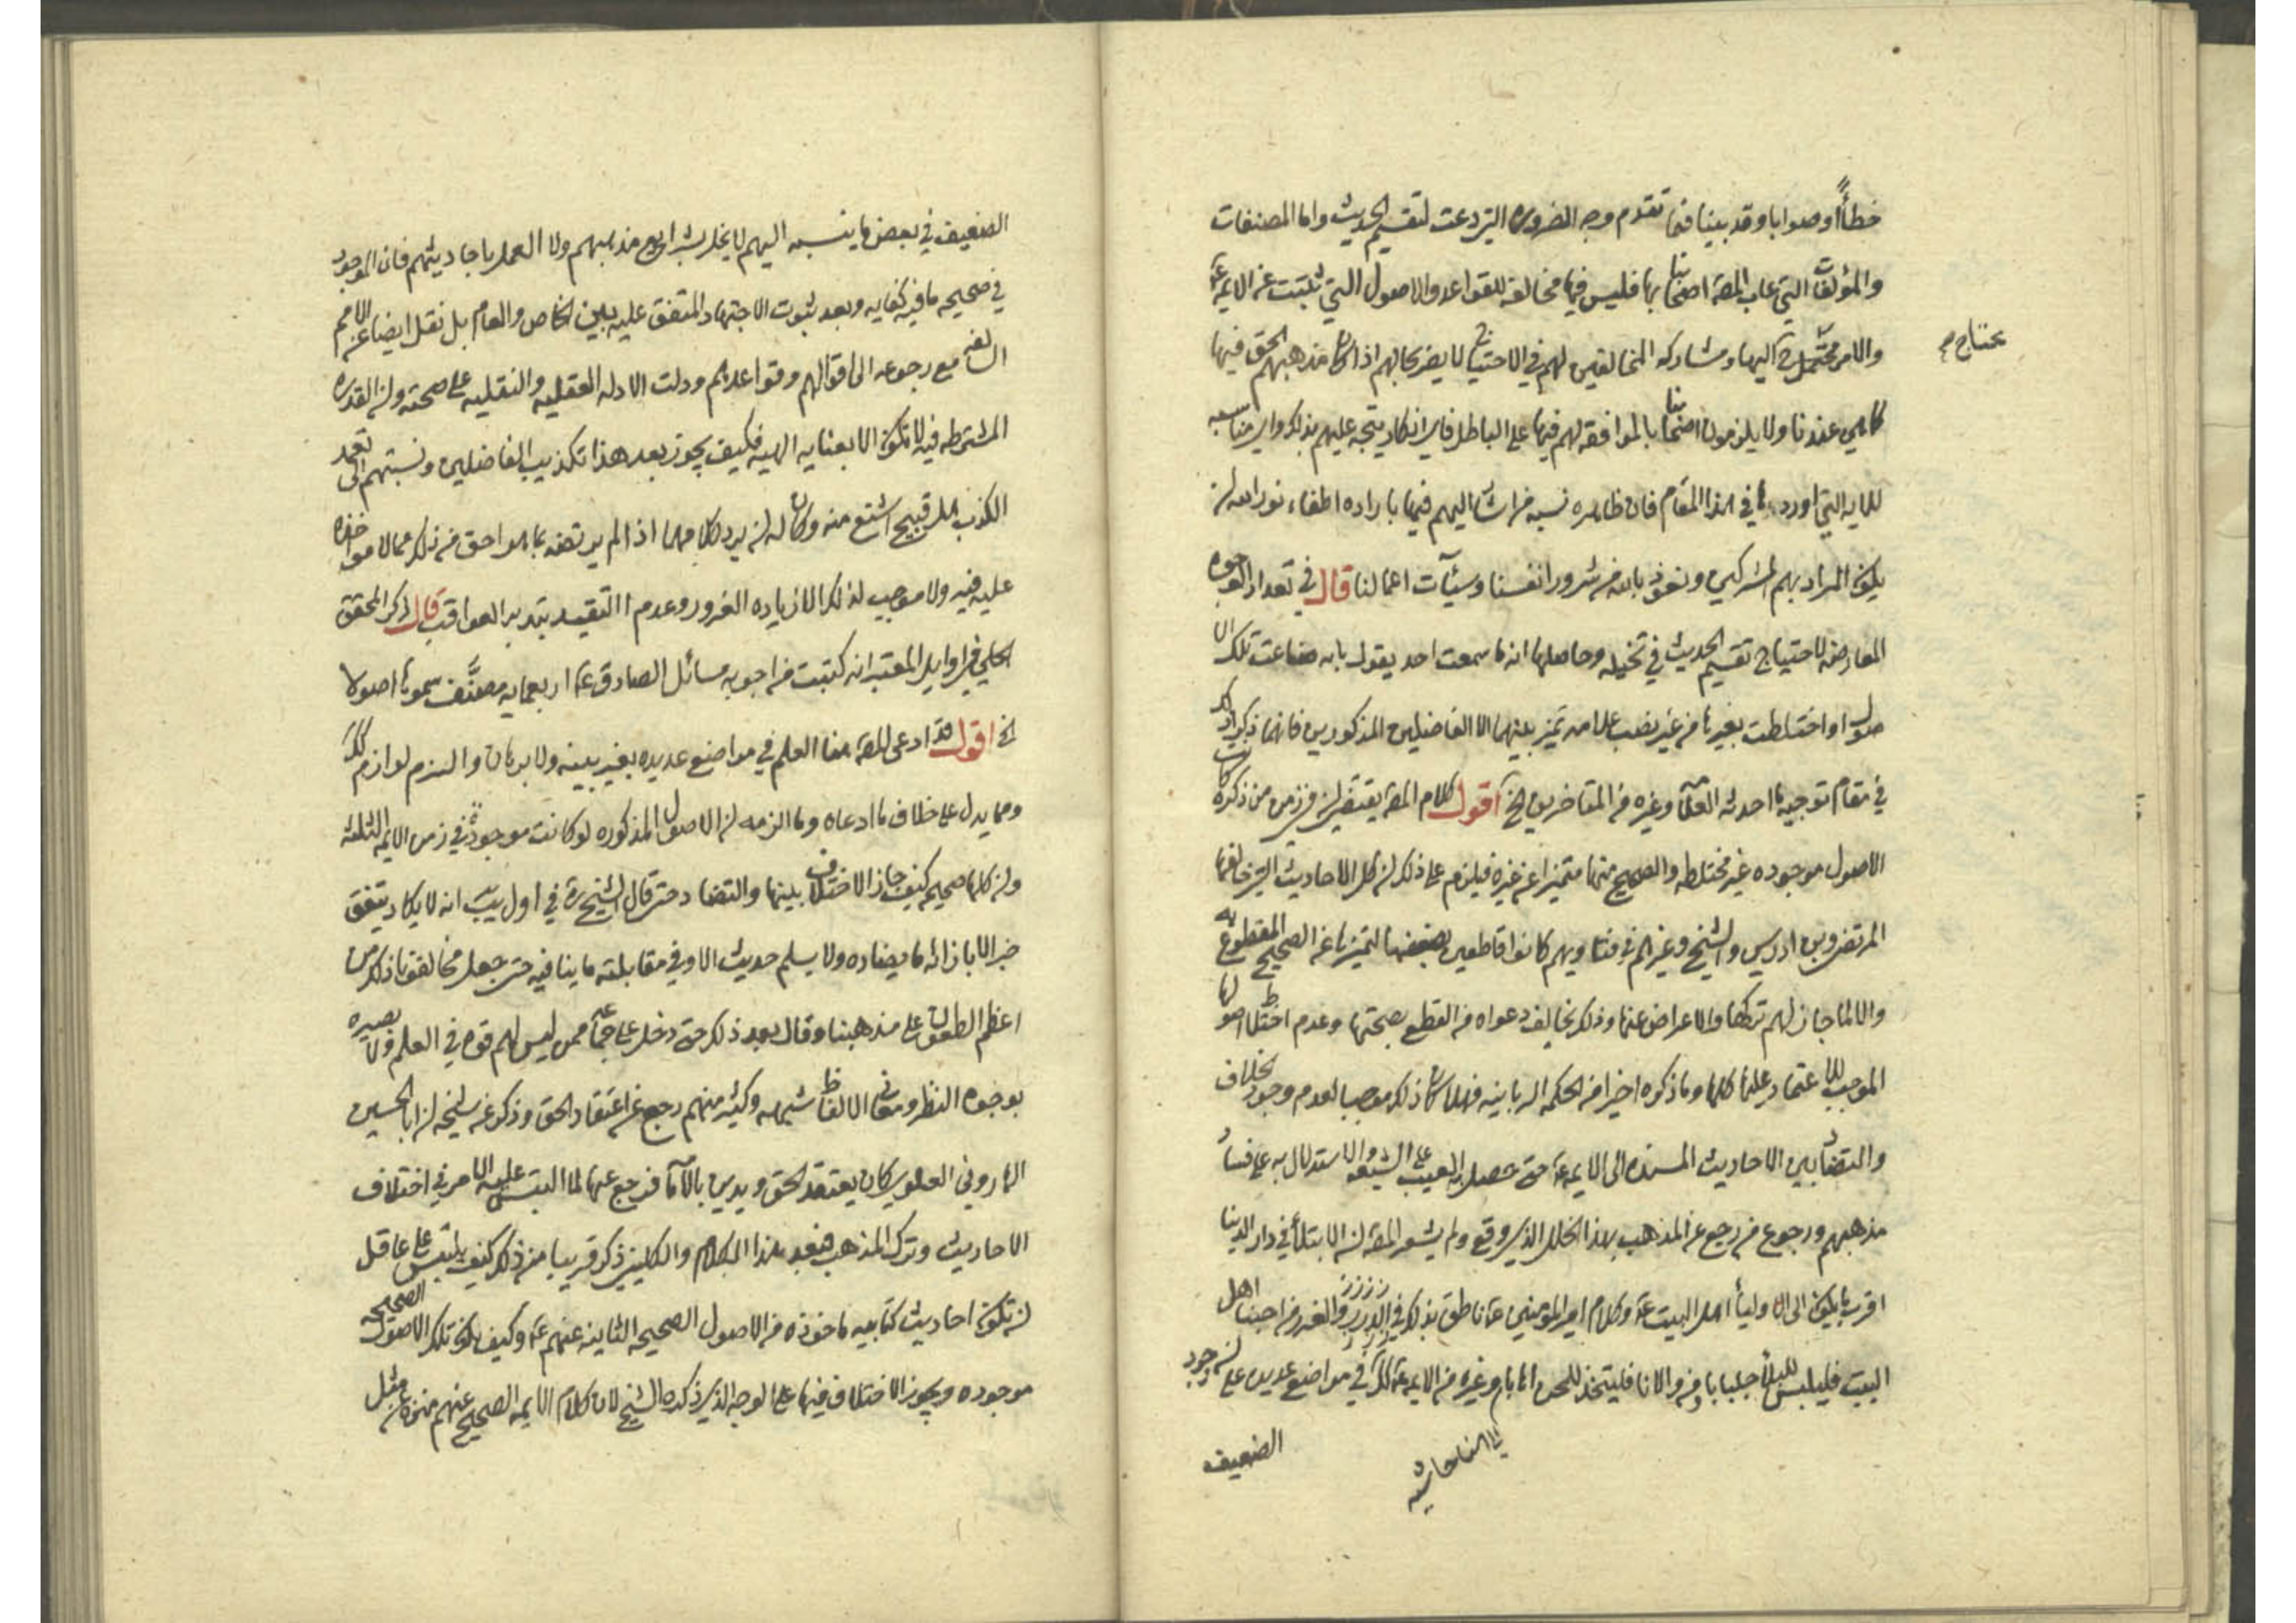 خطأً أو صوابا وقد بينا فيما تقدم وجه الضروره التي دعت لتقسيم الحديث واما المصنفات
والمؤلفات التي عاب المصـ اصحابنا بها فليس فيها مخالفة للقواعد والاصول التي ثبتت عن الايمه عـ
والامر محتاج اليها ومشاركه المخالفين لهم في الاحتياج لا يضر بحالهم اذا كان مذهبهم الحق فيها
محتاج م
كما هي عندنا ولا يلزمون اصحابنا بالموافقه لهم فيها على الباطل فاي انكار يتجه عليهم بذلك واي مناسبه
للايه التي اوردها في هذا المقام فان ظاهره نسبه من اشار اليهم فيها باراده اطفاء نور الله لن
يكون المراد بهم المشركين ونعوذ بالله من شرور انفسنا وسيئآت اعمالنا قال في تعداد الوجوه
المعارضه لاحتياج تقسيم الحديث في تخيله وحاصلها انه ما سمعت احد يقول بانه ضاعت تلك الا
صول او اختلطت بغيرها من غير نصب علامه تميز بينهما الا الفاضلين المذكورين فانهما ذكرا ذلك
في مقام توجيه ما احدثه العلامه وغيره من المتاخرين الخ اقول كلام المصـ يقتضي لن في زمن من ذكره كانت
الاصول موجوده غير مختلطه والصحيح منها متميزا عن غيره فيلزم على ذلك لن كل الاحاديث التي خالفها
المرتضى وبن ادريس والشيخ وغيرهم في فتاويهم كانوا قاطعين بضعفها لتميزها عن الصحيح المقطوع به
والا لما جاز لهم تركها والاعراض عنها وذلك يخالف دعواه من القطع بصحتها وعدم اختلاط اصولها
الموجب للاعتماد عليها كلها وما ذكره اخيرا من الحكمه الربانيه فهلا كان ذلك موجبا لعدم وجود خلاف
والتضاد بين الاحاديث المسنده الى الايمه عـ حتى حصل به العيب على الشيعه والاستدلال به على فساد
مذهبهم ورجوع من رجع عن المذهب بهذا الخلل الذي وقع ولم يشعر المصـ لن الابتلاء في دار الدنيا
اقرب ما يكون الى اوليآ اهل البيت عـ وكلام امير المؤمنين عـ ناطق بذلك في الدرر والغرر من احبنا اهل
البيت فليلبس للبلاء جلبابا وغيره من الايمه عـ في مواضع عديده على لن وجود
الضعيف
الضعيف في بعض ما ينسب اليهم لا يخل بشرايع مذهبهم ولا العمل باحاديثهم فان الموجود
في صحيحه ما فيه كفايه وبعد ثبوت الاجتهاد المتفق عليه بين الخاص والعام بل نقل ايضا عن الامم
السالفه مع رجوعه الى اقوالهم وقواعدهم ودلت الادله العقليه والنقليه على صحته ولن القدره
المشترطه فيه لا تكون الا بعنايه الهيه فكيف يجوز بعد هذا تكذيب الفاضلين ونسبتهم الى تعمد
الكذب هل قبيح اشنع منه وكان له لن يرد كلامهما اذا لم يرتضه بما هو احق من ذلك مما لا مواخذه
عليه فيه ولا موجب لذلك الا زياده الغرور وعدم التقيد بتدبر العواقب قال ذكر المحقق
الحلي في اوايل المعتبر انه كتبت من اجوبه مسائل الصادق عـ اربعمايه مصنَّف سموها اصولا
الخ اقول قد ادعى المصـ هنا العلم في مواضع عديده بغير بينه ولا برهان والتزم لوازم ذلك
ومما يدل على خلاف ما ادعاه وما الزمه لن الاصول المذكوره لو كانت موجودة في زمن الايمه الثلثه
ولن كلها صحيحه كيف جاز الاختلاف بينها والتضاد حتى قال الشيخ ره في اول يب انه لا يكاد يتفق
خبر الا بازائه ما يضاده ولا يسلم حديث الا وفي مقابلته ما ينافيه حتى جعل مخالفونا ذلك من
اعظم الطعون على مذهبنا وقال بعد ذلك حتى دخل على جماعه ممن ليس لهم قوه في العلم ولا بصيره
بوجوه النظر ومعاني الالفاظ شبهه وكثير منهم رجع عن اعتقاد الحق وذكر عن شيخه لن ابا الحسين
الهاروني العلوي كان يعتقد الحق ويدين بالامامه فرجع عنها لما التبس عليه الامر في اختلاف
الاحاديث وترك المذهب فبعد هذا الكلام والكليني ذكر قريبا من ذلك كيف يلتبس على عاقل
لن تكون احاديث كتابيه ماخوذه من الاصول الصحيحه الثابته عنهم عـ وكيف تكون تلك الاصول الصحيحه
موجوده ويجوز الاختلاف فيها على الوجه الذي ذكره الشيخ لان كلام الايمه الصحيح عنهم منزه عن مثل